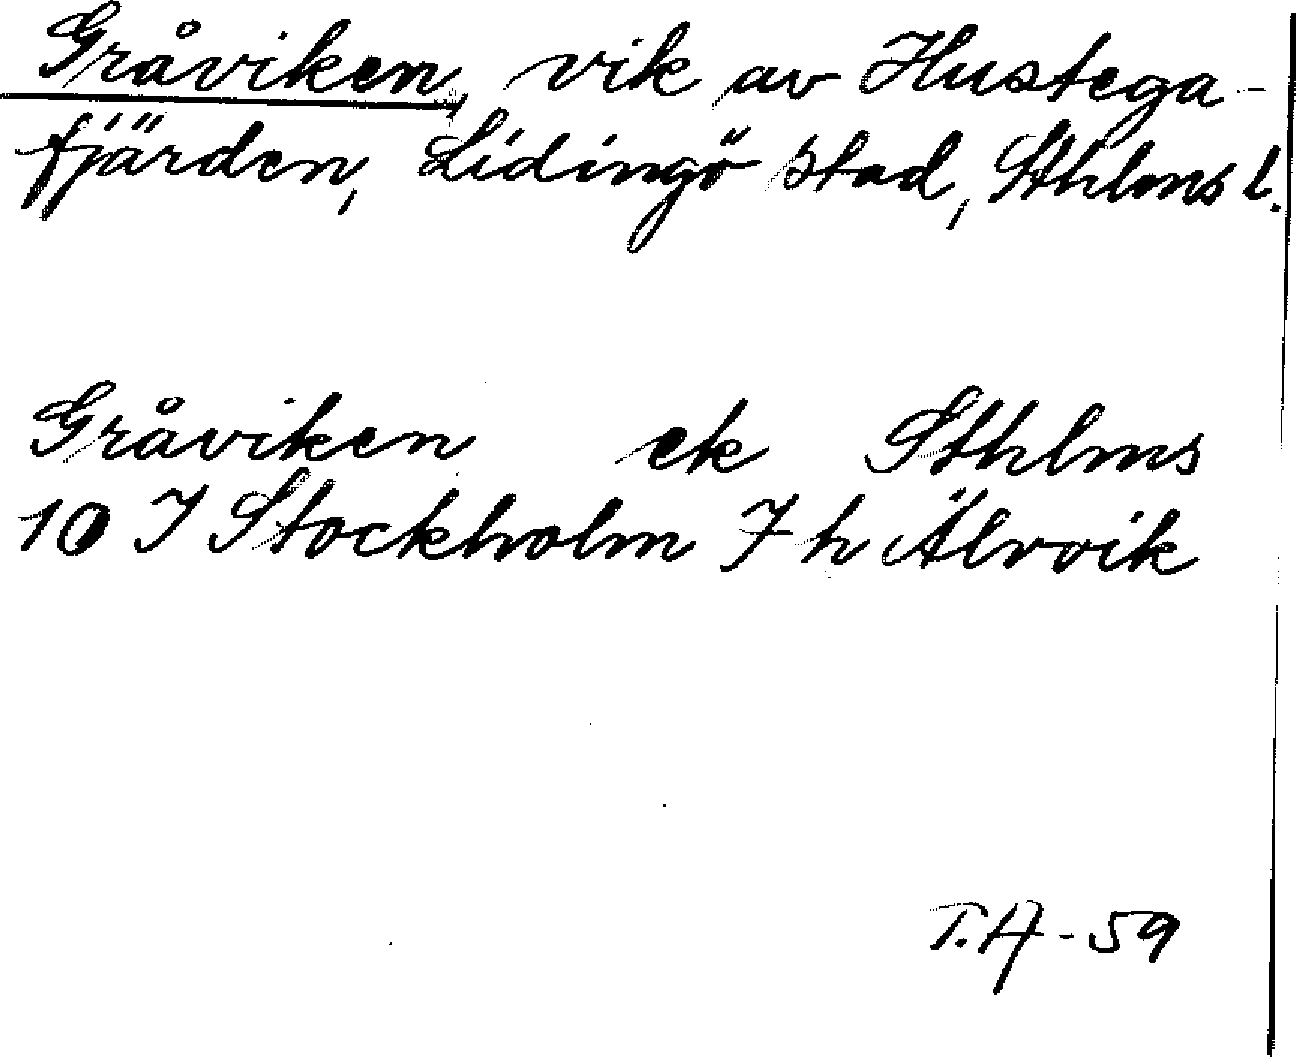 Gråviken, vik av Hustega-
fjärden, Lidingö stad, Sthlms l.
Gråviken ek Sthlms
10 I Stockholm 7 h Älvvik
T.A-59